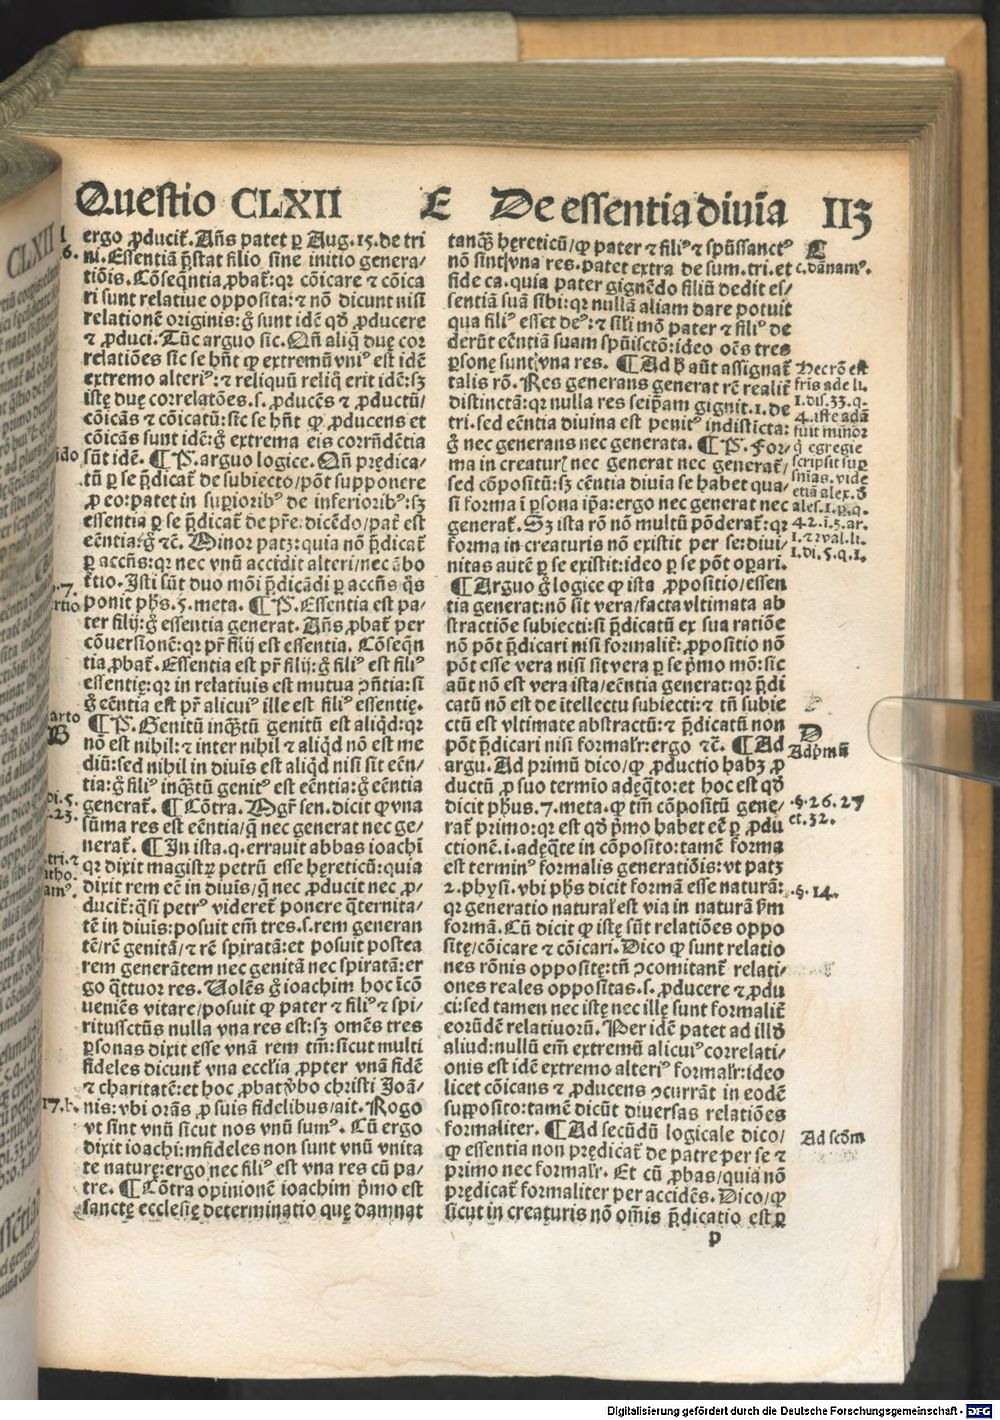 Questio CLXII E De essentia diuīa 113
ergo ꝓducit̃. Añs patet ꝑ Aug. 15. de tri
ni. Essentia p̃stat filio sine initio genera/
tiōis. Cōseq̃ntia ꝓbat̃: qꝛ cōicare ⁊ cōica
ri sunt relatiue opposita: ⁊ nō dicunt nisi
relationē originis: g̃ sunt idē qđ ꝓducere
⁊ ꝓduci. Tūc arguo sic. Qñ aliq̃ due cor
relatiōes sic se hñt ꝙ extremū vniꝰ est idē
extremo alteriꝰ: ⁊ reliquū reliq̃ erit idē: sꝫ
istę duę correlatōes. s. ꝓducēs ⁊ ꝓductū/
cōicās ⁊ cōicatū: sic se hñt ꝙ ꝓducens et
cōicās sunt idē: g̃ extrema eis corrñdētia
sūt idē. ¶ P̃. arguo logice. Qñ prędica/
tū ꝑ se p̃dicat̃ de subiecto/pōt supponere
ꝓ eo: patet in suꝑioribꝰ de inferioribꝰ: sꝫ
essentia ꝑ se p̃dicat̃ de pr̃e. dicēdo/pat̃ est
eēntia: g̃ ⁊c. Minor patꝫ: quia nō p̃dicat̃
ꝑ accñs: qꝛ nec vnū accidit alteri/nec ābo
t̃tio. Isti sūt duo mōi p̃dicādi ꝑ accñs q̃s
ponit ph̃s. 5. meta. ¶ P̃. Essentia est pa/
ter filij: g̃ essentia generat. Añs ꝓbat̃ per
cōuersionē: qꝛ pr̃ filij est essentia. Cōseq̃n
tia ꝓbat̃. Essentia est pr̃ filij: g̃ filiꝰ est filiꝰ
essentię: qꝛ in relatiuis est mutua ↄ̃ñtia: si
g̃ eēntia est pr̃ alicuiꝰ ille est filiꝰ essentię.
¶ P̃. Genitū inq̃tū genitū est aliqđ: qꝛ
nō est nihil: ⁊ inter nihil ⁊ aliqđ nō est me
diū: sed nihil in diuis est aliqđ nisi sit eēn/
tia: g̃ filiꝰ inq̃tū genitꝰ est eēntia: g̃ eēntia
generat̃. ¶ Cōtra. Mgr̃ sen. dicit ꝙ vna
sūma res est eēntia/q̃ nec generat nec ge/
nerat̃. ¶ In ista. q. errauit abbas ioachī
qꝛ dixit magistꝝ petrū esse hereticū: quia
dixit rem eē in diuis/q̃ nec ꝓducit nec ꝓ/
ducit̃: q̃si petrꝰ videret̃ ponere q̃ternita/
tē in diuis: posuit em̃ tres. s. rem generan
tē/rē genitā/⁊ rē spiratā: et posuit postea
rem generātem nec genitā nec spiratā: er
go q̃ttuor res. Volēs g̃ ioachim hoc īcō
ueniēs vitare/posuit ꝙ pater ⁊ filiꝰ ⁊ spi/
ritussctūs nulla vna res est: sꝫ omēs tres
ꝑsonas dixit esse vnā rem tm̃: sicut multi
fideles dicunt̃ vna ecclia ꝓpter vnā fidē
⁊ charitatē: et hoc ꝓbat ꝟbo christi Joā/
nis: vbi orās ꝓ suis fidelibus/ait. Rogo
vt sint vnū sicut nos vnū sumꝰ. Cū ergo
dixit ioachi: infideles non sunt vnū vnita
te naturę: ergo nec filiꝰ est vna res cū pa/
tre. ¶ Cōtra opinionē ioachim p̃mo est
sanctę ecclesię determinatio quę damnat
tanq̃ʒ hereticū/ꝙ pater ⁊ filiꝰ ⁊ spūssanctꝰ
nō sint vna res. patet extra de sum. tri. et
fide ca. quia pater gignēdo filiū dedit es/
sentiā suā sibi: qꝛ nullā aliam dare potuit
qua filiꝰ esset deꝰ: ⁊ sili mō pater ⁊ filiꝰ de
derūt eēntiā suam spūisctō: ideo oēs tres
ꝑsonę sunt vna res. ¶ Ad ħ aūt assignat̃
talis rō. Res generans generat rē realit̃
distinctā: qꝛ nulla res seip̃am gignit. 1. de
tri. sed eēntia diuina est penitꝰ indistīcta:
g̃ nec generans nec generata. ¶ P̃. For/
ma in creaturꝭ nec generat nec generat̃/
sed cōpositū: sꝫ eēntia diuia se habet qua/
si forma ī ꝑsona ip̃a: ergo nec generat nec
generat̃. Sꝫ ista rō nō multū pōderat̃: qꝛ
forma in creaturis nō existit per se: diui/
nitas autē ꝑ se existit: ideo ꝑ se pōt oꝑari.
¶ Arguo g̃ logice ꝙ ista ꝓpositio/essen
tia generat: nō sit vera/facta vltimata ab
stractiōe subiecti: si p̃dicatū ex sua ratiōe
nō pōt p̃dicari nisi formalit̃: ꝓpositio nō
pōt esse vera nisi sit vera ꝑ se p̃mo mō: sic
aūt nō est vera ista/eēntia generat: qꝛ p̃di
catū nō est de itellectu subiecti: ⁊ tñ subie
ctū est vltimate abstractū: ⁊ p̃dicatū non
pōt p̃dicari nisi formalr̃: ergo ⁊c. ¶ Ad
argu. Ad primū dico/ꝙ ꝓductio habꝫ ꝓ
ductū ꝓ suo termio adęq̃to: et hoc est qđ
dicit phūs. 7. meta. ꝙ tm̃ cōpositū gene/
rat̃ primo: qꝛ est qđ p̃mo habet eē ꝑ ꝓdu
ctionē. i. adęq̃te in cōposito: tamē forma
est terminꝰ formalis generatiōis: vt patꝫ
2. physi. vbi ph̃s dicit formā esse naturā:
qꝛ generatio natural est via in naturā s̃m
formā. Cū dicit ꝙ istę sūt relatiōes oppo
sitę/cōicare ⁊ cōicari. Dico ꝙ sunt relatio
nes rōnis oppositę: tñ ↄcomitant̃ relati/
ones reales oppositas. s. ꝓducere ⁊ ꝓdu
ci: sed tamen nec istę nec illę sunt formalit̃
eorūdē relatiuorū. Per idē patet ad illđ
aliud: nullū em̃ extremū alicuiꝰ correlati/
onis est idē extremo alteriꝰ formalr̃: ideo
licet cōicans ⁊ ꝓducens ↄcurrāt in eodē
supposito: tamē dicūt diuersas relatiōes
formaliter. ¶ Ad secūdū logicale dico/
ꝙ essentia non prędicat̃ de patre per se ⁊
primo nec formalr̃. Et cū ꝓbas/quia nō
prędicat̃ formaliter per accidēs. Dico/ꝙ
sicut in creaturis nō om̃is p̃dicatio est ꝑ
p
C
c. dānamꝰ.
Necrō est
fris ade li.
1. dis. 33. q.
4. iste adā
fuit minor
q̃ egregie
scripsit suꝑ
sniās. vide
etiā alex. đ
ales. 1. ꝑ. q.
42. i. 5. ar.
1. ⁊ rval. li.
1. di. 5. q. 1.
D
Ad p̃mū
.§. 26. 27
et. 32.
.§. 14.
Ad scđm
B
17. b.
Digitalisierung gefördert durch die Deutsche Forschungsgemeinschaft - DFG